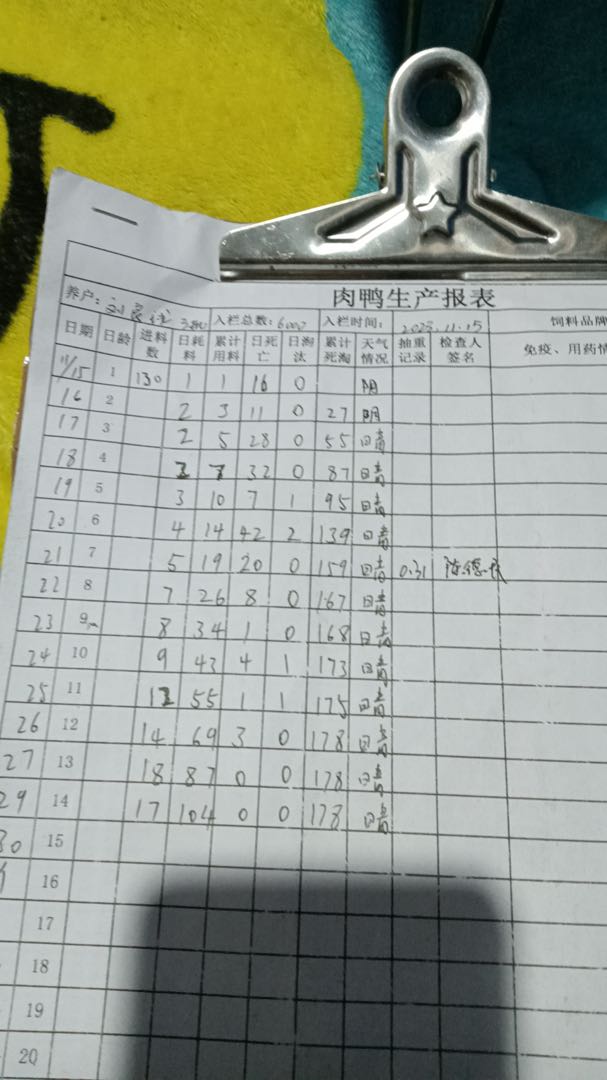 肉鸭生产报表
养户: 入栏总数:6000 入栏时间: 2025.11.15 饲料品牌
日期 日龄 进料数 日耗料 累计用料 日死亡 日淘汰 累计死淘 天气情况 抽重记录 检查人签名 免疫、用药情
11/15 1 130 1 1 16 0 阴
16 2 2 3 11 0 27 阴
17 3 2 5 28 0 55 晴
18 4 2 7 32 0 87 晴
19 5 3 10 7 1 95 晴
20 6 4 14 42 2 139 晴
21 7 5 19 20 0 159 晴 0.31
22 8 7 26 8 0 167 晴
23 9 8 34 1 0 168 晴
24 10 9 43 4 1 173 晴
25 11 12 55 1 1 175 晴
26 12 14 69 3 0 178 晴
27 13 18 87 0 0 178 晴
29 14 17 104 0 0 178 晴
30 15
16
17
18
19
20